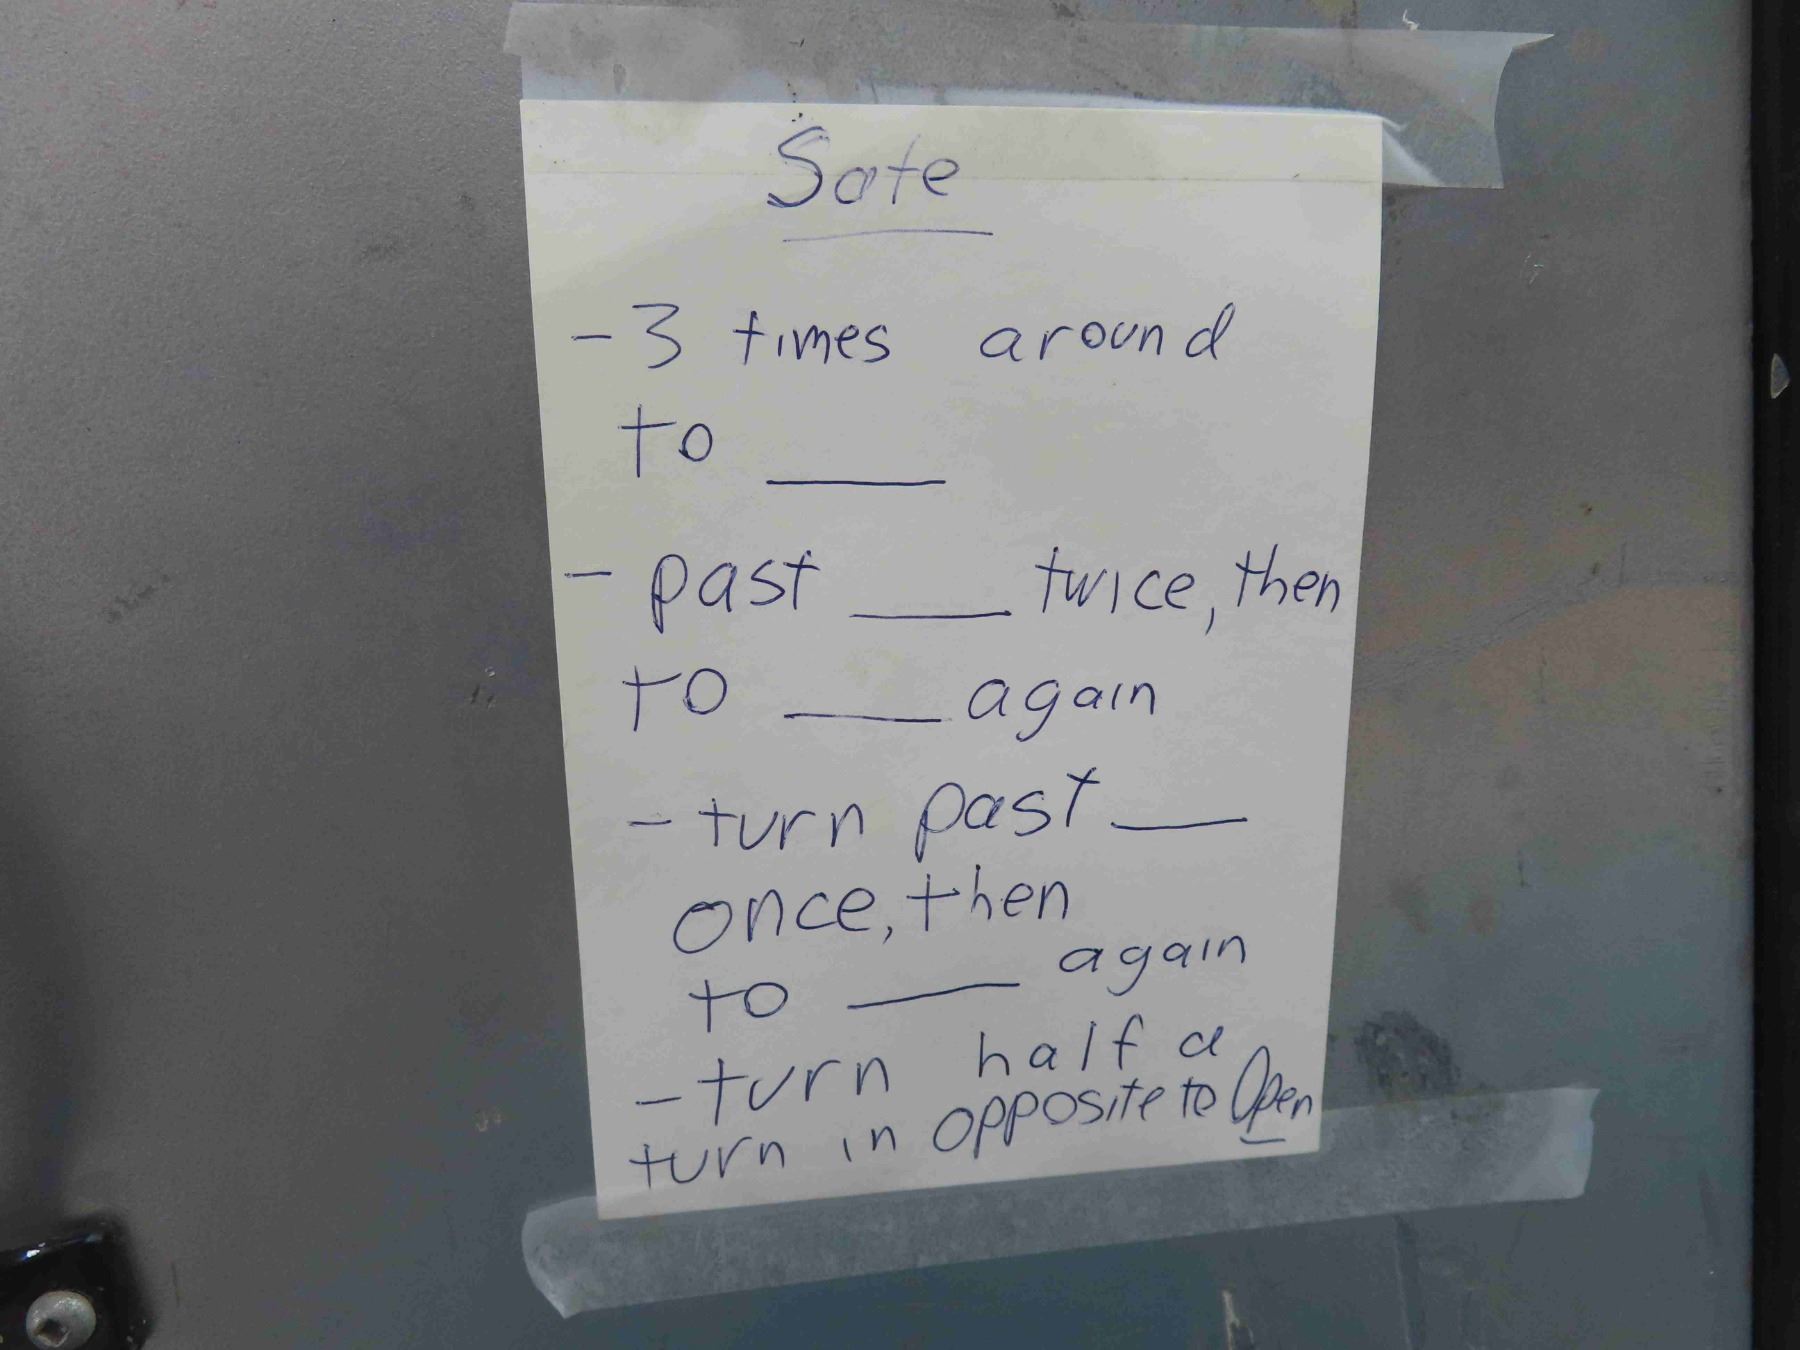 Safe
- 3 times around
to ____
- past ____ twice, then
to ____ again
- turn past ____
once, then
to ____ again
- turn half a
turn in opposite to Open